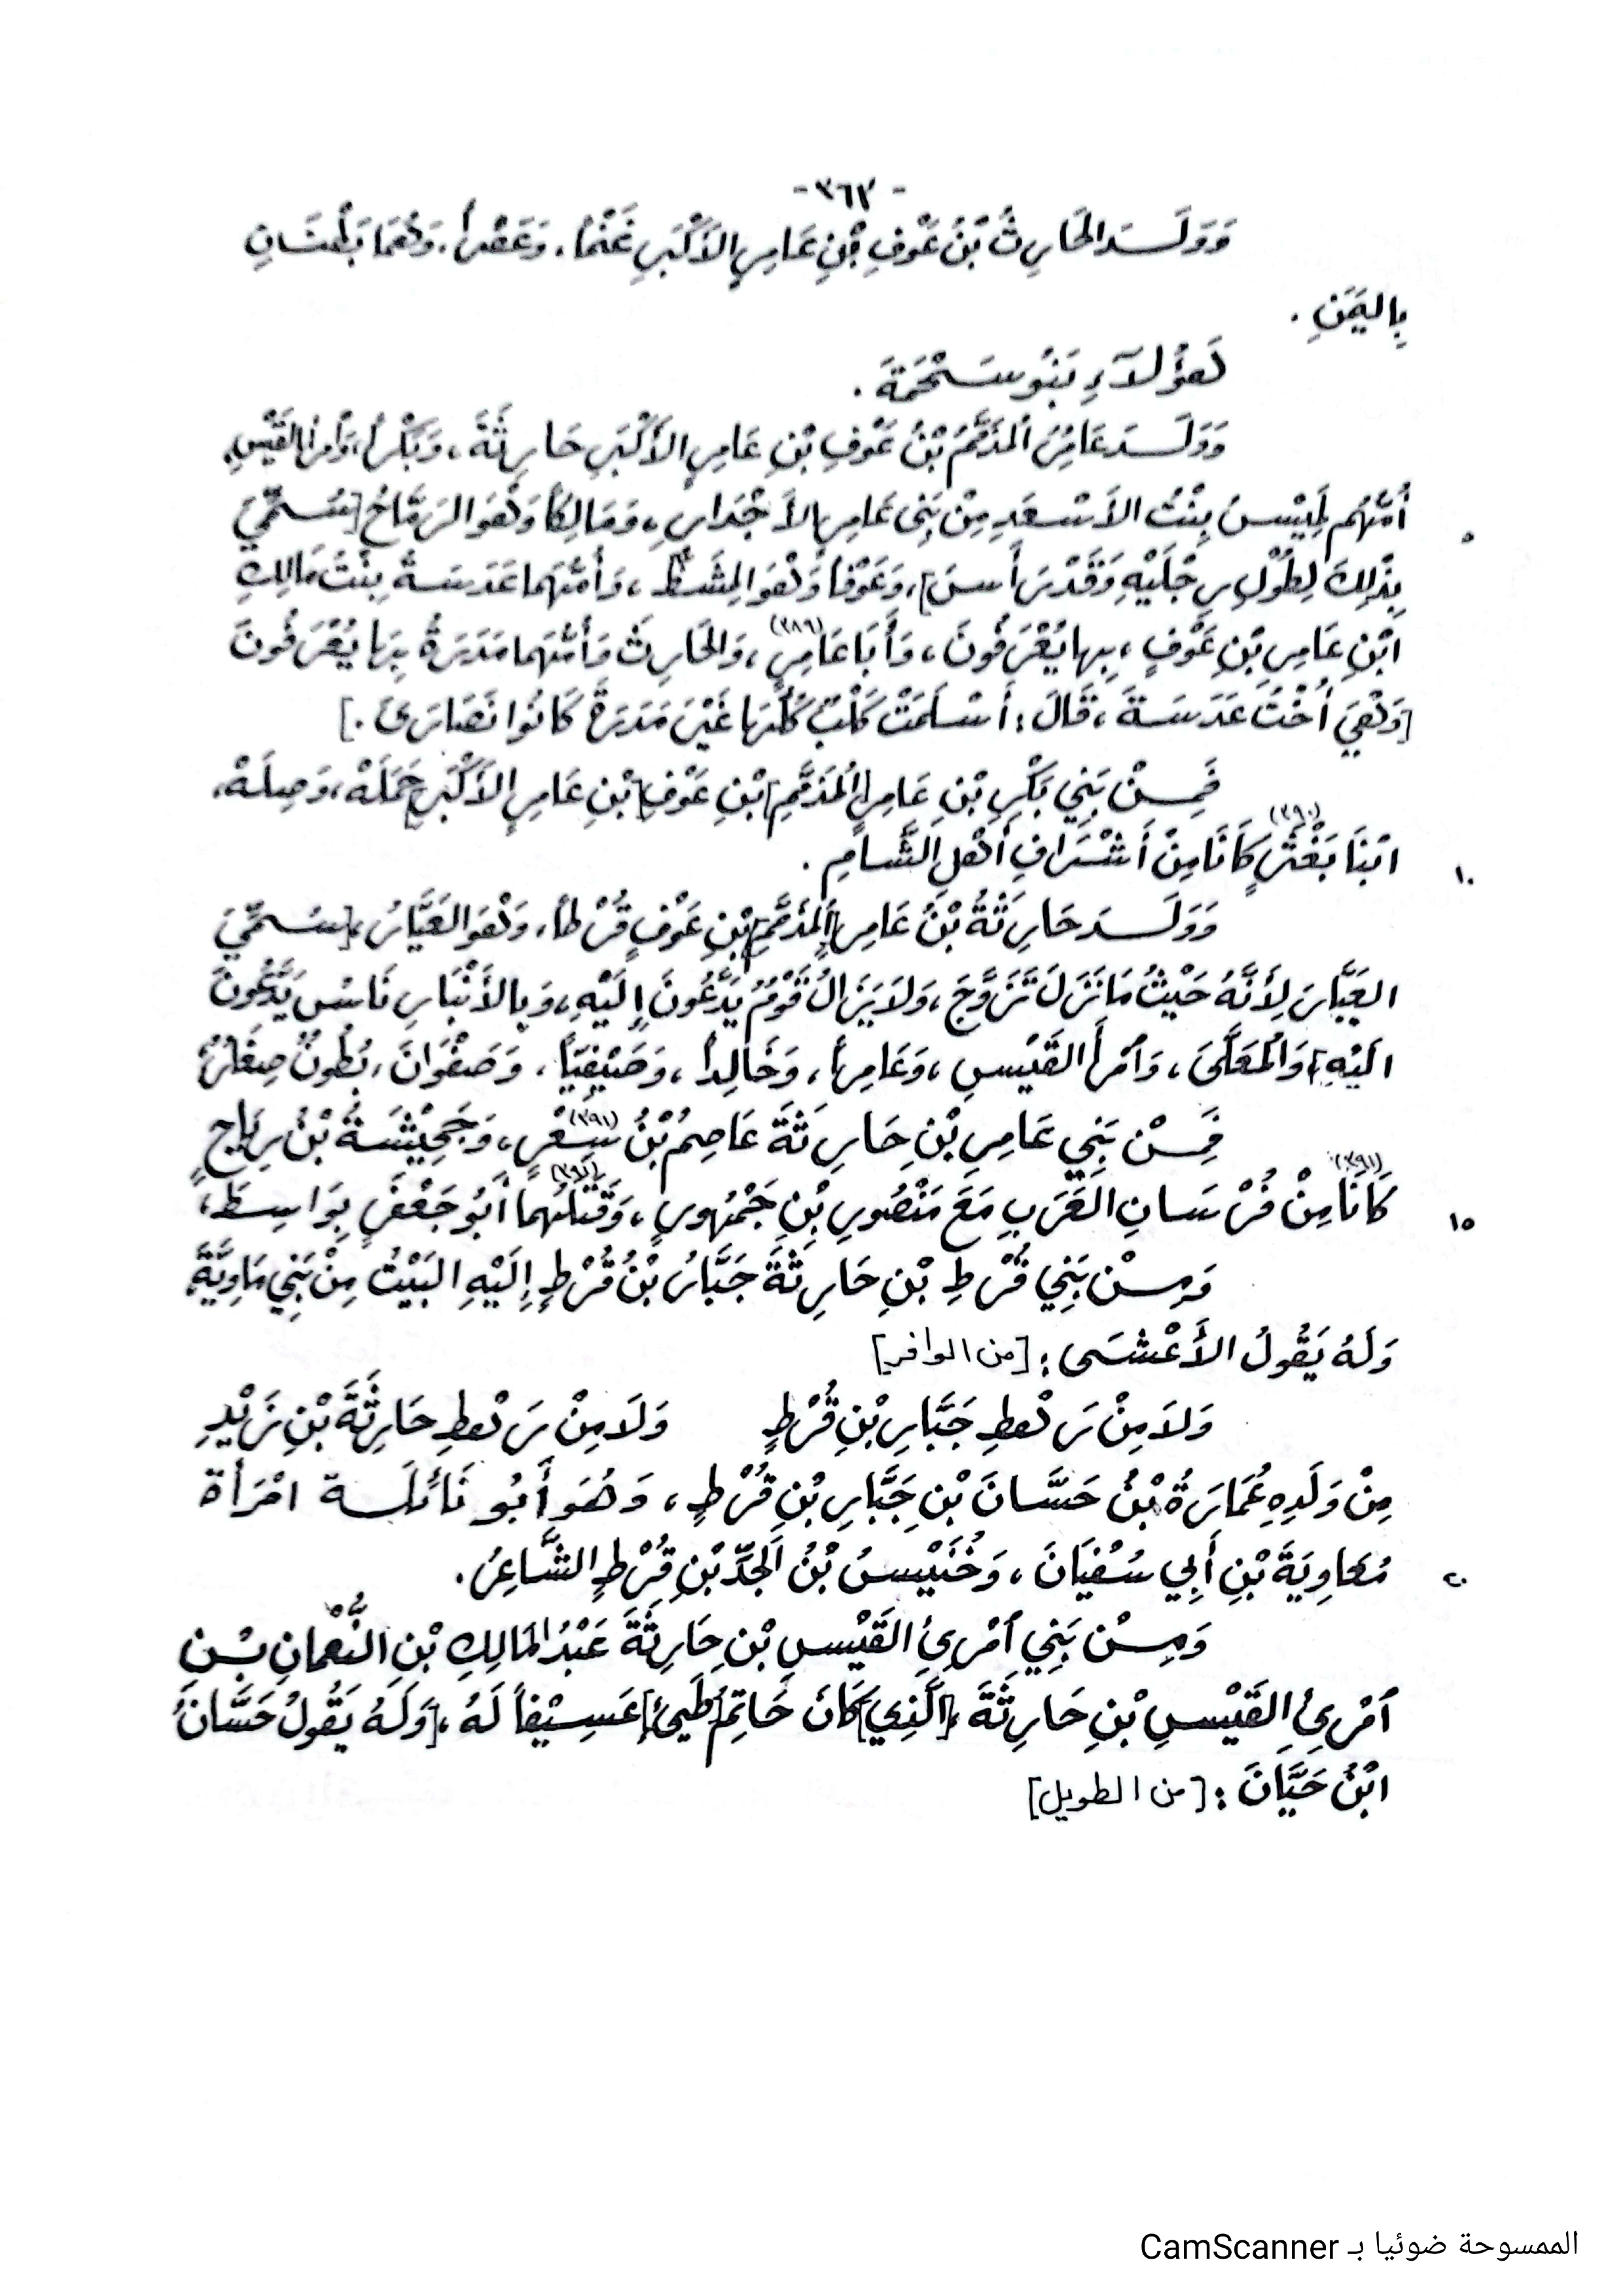 -٣٦٣-
وَوَلَدَ الحَارِثُ بْنُ عَوْفِ بْنِ عَامِرٍ الأَكْبَرِ غَنْمَاً، وَعَصْراً، وَهُمَا بَطْنَانِ
بِاليَمَنِ .
هَؤُلَاءِ بَنُو سَحْمَةَ .
وَوَلَدَ عَامِرُ المُذَمَّمُ بْنُ عَوْفِ بْنِ عَامِرٍ الأَكْبَرِ حَارِثَةَ، وَبَكْراً، وَامْرَأَ القَيْسِ،
أُمُّهُم لَمِيْسُ بِنْتُ الأَسْعَدِ مِنْ بَنِي عَامِرِ الأَجْدَارِ، وَمَالِكَاً وَهُوَ الرَّمَّاحُ [سُمِّيَ ٥
بِذَلِكَ لِطُوْلِ رِجْلَيْهِ وَقَدْ رَأَسَ]، وَعَوْفَاً وَهُوَ المِشَظُّ، وَأُمُّهُمَا عَدَسَةُ بِنْتُ مَالِكِ
ابْنِ عَامِرِ بْنِ عَوْفٍ، بِهَا يُعْرَفُونَ، وَأَبَا عَامِرٍ (٣٨٩)، وَالحَارِثَ وَأُمُّهُمَا مَدَرَةُ بِهَا يُعْرَفُونَ
[وَهِيَ أُخْتُ عَدَسَةَ، قَالَ: أَسْلَمَتْ كَلْبٌ كُلُّهَا غَيْرَ مَدَرَةَ كَانُوا نَصَارَى .]
فَمِنْ بَنِي بَكْرِ بْنِ عَامِرٍ [المُذَمَّمِ] بْنِ عَوْفِ [بْنِ عَامِرٍ الأَكْبَرِ] حَمَلَهْ، وَصِلَهْ،
ابْنَا بَغْثَرٍ (٣٩٠) كَانَا مِنْ أَشْرَافِ أَهْلِ الشَّامِ . ١٠
وَوَلَدَ حَارِثَةُ بْنُ عَامِرٍ [المُذَمَّمِ] بْنِ عَوْفٍ قُرْطَاً، وَهُوَ العَيَّارُ، [سُمِّيَ
العَيَّارَ لِأَنَّهُ حَيْثُ مَا نَزَلَ تَزَوَّجَ، وَلَا يَزَالُ قَوْمٌ يَدَّعُونَ إِلَيْهِ، وَبِالأَنْبَارِ نَاسٌ يَدَّعُونَ
اليْهِ] وَالمُعَلَّى، وَامْرَأَ القَيْسِ، وَعَامِراً، وَخَالِداً، وَصَيْفِيَّاً، وَصَفْوَانَ، بُطُونٌ صِغَارٌ،
فَمِنْ بَنِي عَامِرِ بْنِ حَارِثَةَ عَاصِمُ بْنُ سِعْرٍ (٣٩١)، وَجَحِيْشَةُ بْنُ رِيَاحٍ
(٣٩١) كَانَا مِنْ فُرْسَانِ العَرَبِ مَعَ مَنْصُورِ بْنِ جَمْهُورٍ، وَقَتَلَهُمَا أَبُو جَعْفَرٍ بِوَاسِطَ، ١٥
وَمِنْ بَنِي قُرْطِ بْنِ حَارِثَةَ جَبَّارُ بْنُ قُرْطٍ إِلَيْهِ البَيْتُ مِنْ بَنِي مَاوِيَّةَ،
وَلَهُ يَقُولُ الأَعْشَى: [من الوافر]
وَلَا مِنْ رَهْطِ جَبَّارِ بْنِ قُرْطٍ وَلَا مِنْ رَهْطِ حَارِثَةَ بْنِ زَيْدِ
مِنْ وَلَدِهِ عُمَارَةُ بْنُ حَسَّانَ بْنِ جَبَّارِ بْنِ قُرْطٍ، وَهُوَ أَبُو نَائِلَة امْرَأة
مُعَاوِيَةَ بْنِ أَبِي سُفْيَانَ، وَخُنَيْسُ بْنُ الجَدِّ بْنِ قُرْطٍ الشَّاعِرُ . ٢٠
وَمِنْ بَنِي امْرِئِ القَيْسِ بْنِ حَارِثَةَ عَبْدُ المَالِكِ بْنِ النُّعْمَانِ بْنِ
امْرِئِ القَيْسِ بْنِ حَارِثَةَ، [الَّذِي] كَانَ حَاتِمُ [طَيءٍ] عَسِيْفَاً لَهُ، [وَلَهُ يَقُولُ حَسَّانُ
ابْنُ حَيَّانَ: [من الطويل]
الممسوحة ضوئيا بـ CamScanner